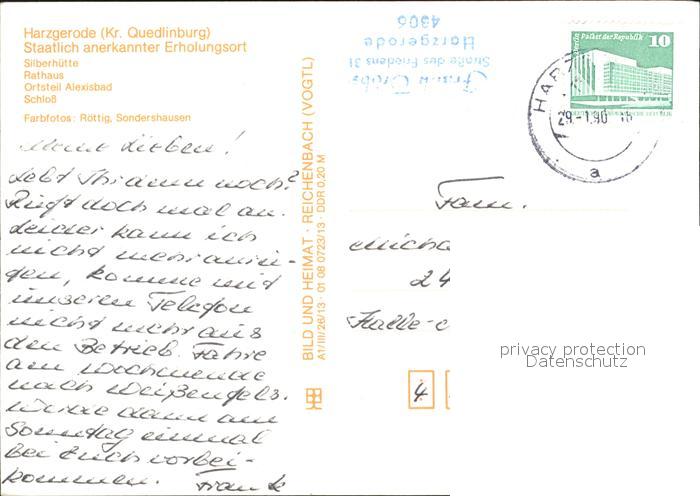 Harzgerode (Kr. Quedlinburg)
Staatlich anerkannter Erholungsort
Silberhütte
Rathaus
Ortsteil Alexisbad
Schloß
Farbfotos: Röttig, Sondershausen
Meine Lieben!
Lebt Ihr denn noch?
Ruft doch mal an.
Leider kann ich
nicht mehr anru-
fen, komme mit
unserem Telefon
nicht mehr aus
dem Betrieb. Fahre
am Wochenende
nach Weißenfels.
Würde dann am
Sonntag einmal
bei Euch vorbei-
kommen. Frank
BILD UND HEIMAT · REICHENBACH (VOGTL)
A1/III/26/13 · 01 08 0723/13 · DDR 0,20 M
Frank
Straße des Friedens 31
Harzgerode
4306
Palast der Republik
10
HARZ
29.-1.90
a
Fam.
Micha
24
Halle-
4
privacy protection
Datenschutz